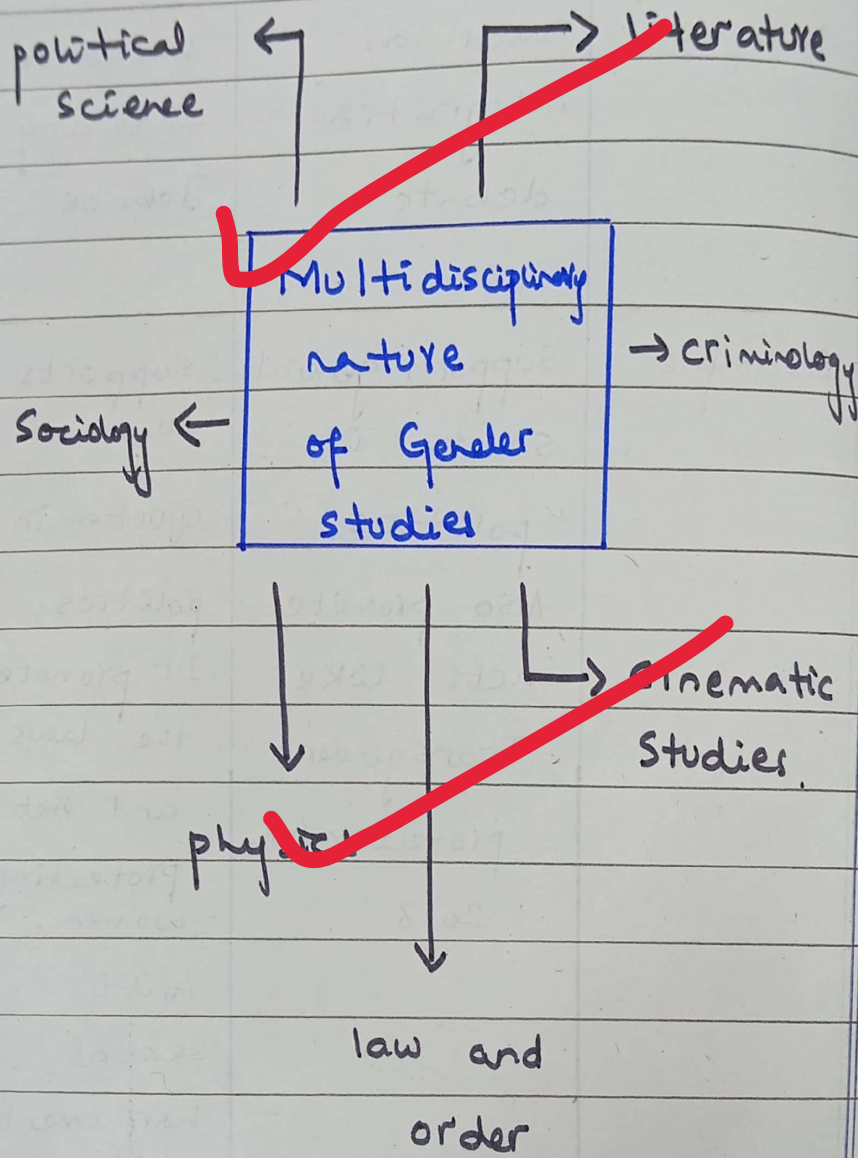 political
science
literature
Multidisciplinary
nature
of Gender
studies
criminology
Sociology
cinematic
studies.
physics
law and
order